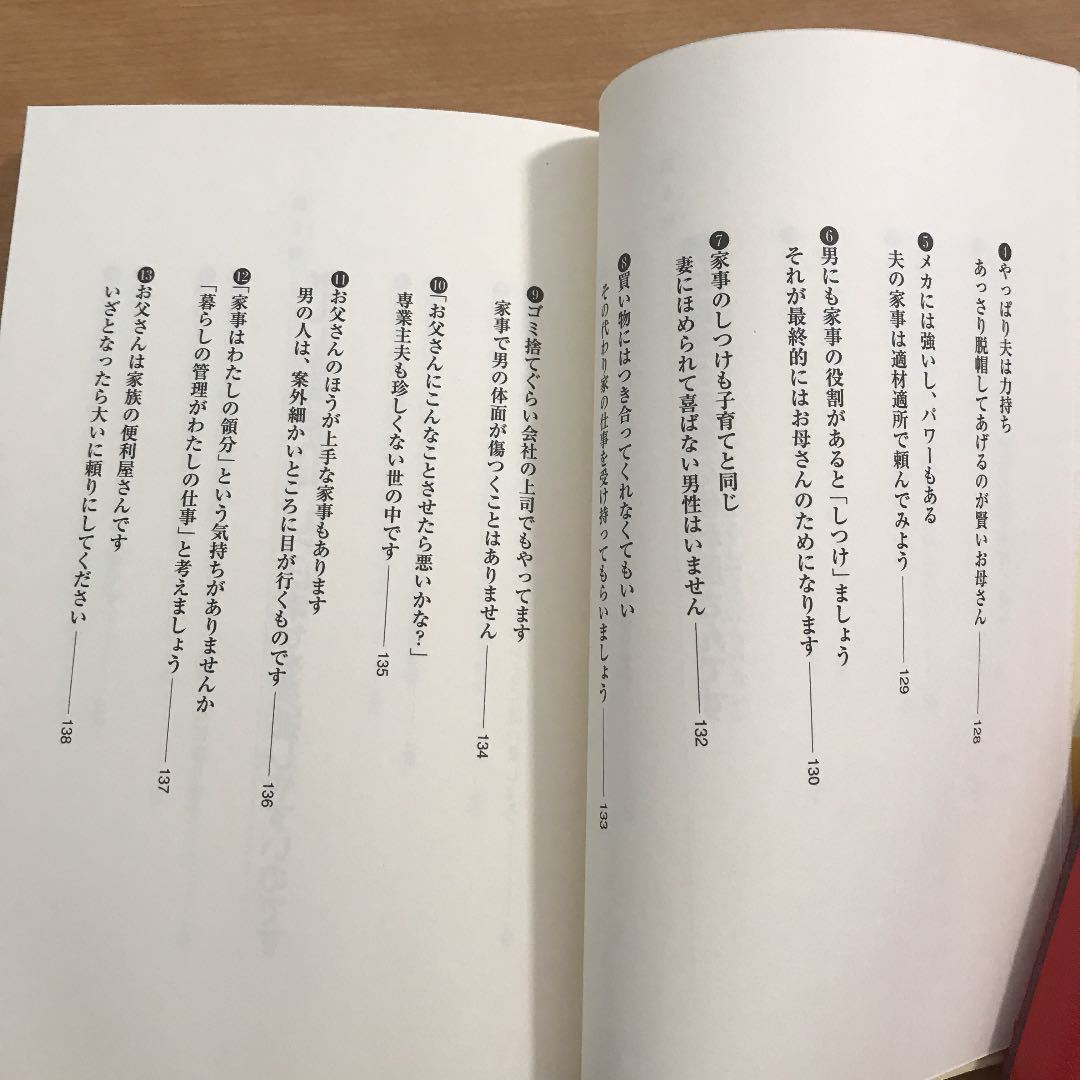 ❹やっぱり夫は力持ち
あっさり脱帽してあげるのが賢いお母さん——128
❺メカには強いし、パワーもある
夫の家事は適材適所で頼んでみよう——129
❻男にも家事の役割があると「しつけ」ましょう
それが最終的にはお母さんのためになります——130
❼家事のしつけも子育てと同じ
妻にほめられて喜ばない男性はいません——132
❽買い物にはつき合ってくれなくてもいい
その代わり家の仕事を受け持ってもらいましょう——133
❾ゴミ捨てぐらい会社の上司でもやってます
家事で男の体面が傷つくことはありません——134
❿「お父さんにこんなことさせたら悪いかな?」
専業主夫も珍しくない世の中です——135
⓫お父さんのほうが上手な家事もあります
男の人は、案外細かいところに目が行くものです——136
⓬「家事はわたしの領分」という気持ちがありませんか
「暮らしの管理がわたしの仕事」と考えましょう——137
⓭お父さんは家族の便利屋さんです
いざとなったら大いに頼りにしてください——138